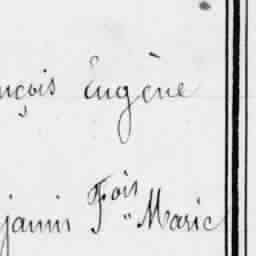 nçois Eugène
jamin Fois " Marie